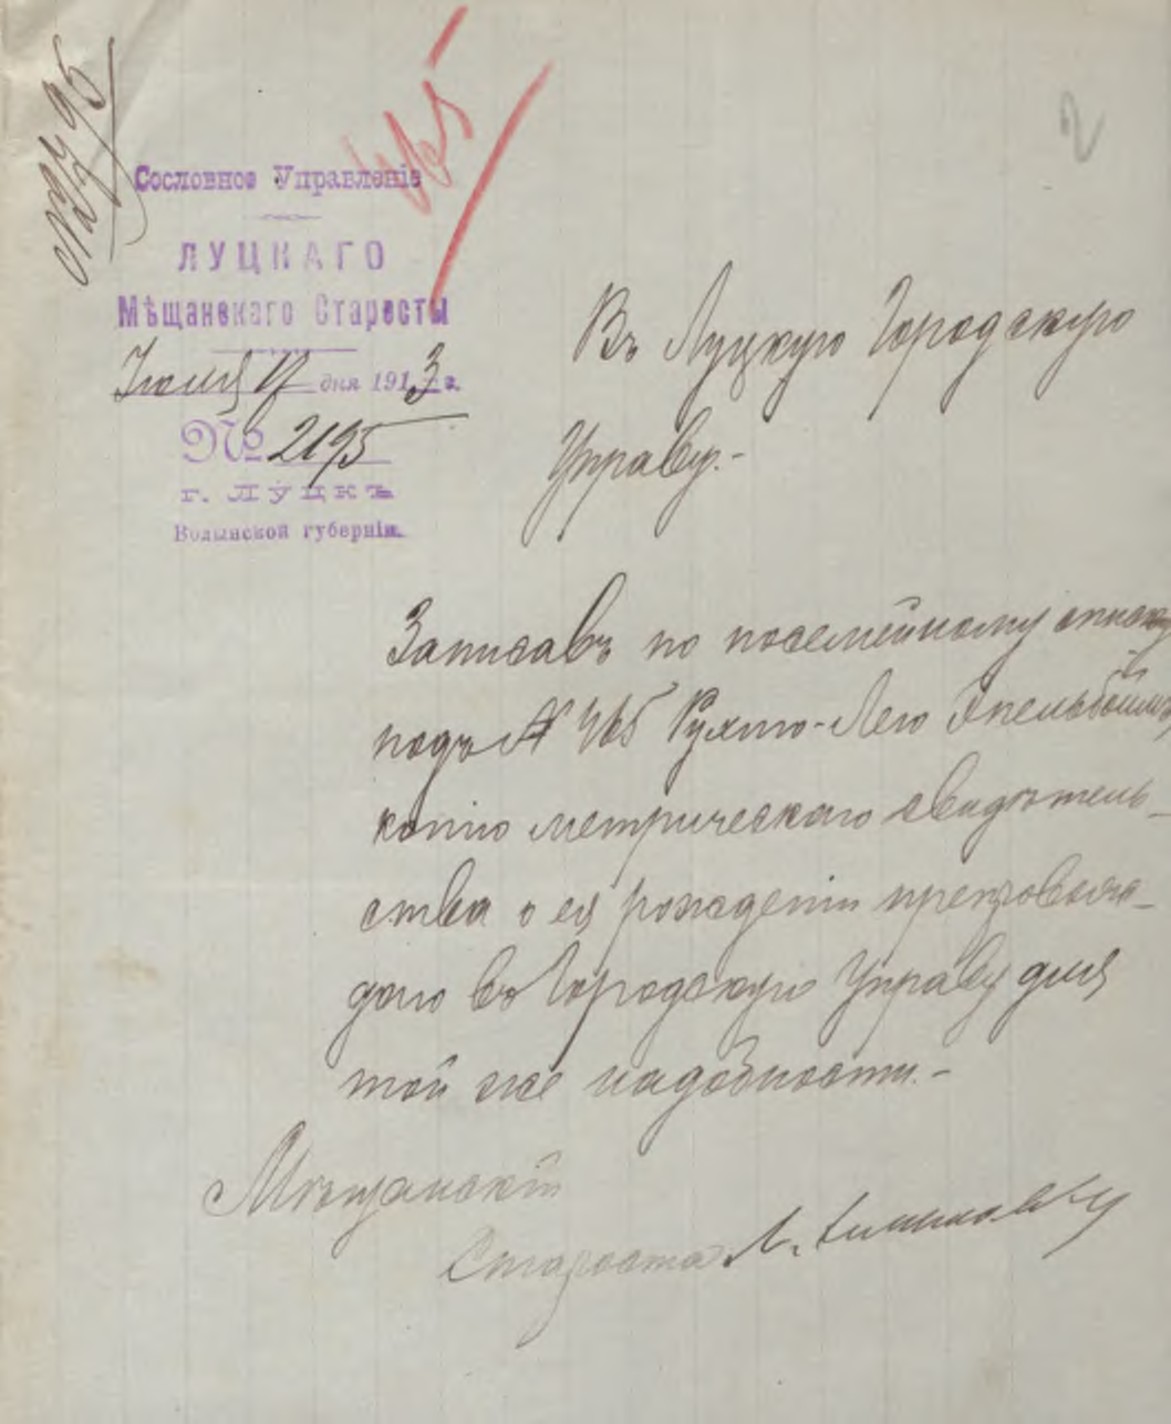 465
2
Сословное Управленіе
ЛУЦКАГО
Мѣщанскаго Старосты
Іюля 17 дня 1913 г.
№ 2195
г. ЛУЦКЪ
Волынской губерніи.
Въ Луцкую Городскую
Управу.-
Записавъ по посемейному списку
подъ № 465 Рухлю-Лею Эпельбоймъ,
копію метрическаго свидѣтель-
ства о ея рожденіи препровож-
даю въ Городскую Управу для
той же надобности.-
Мѣщанскій
Староста